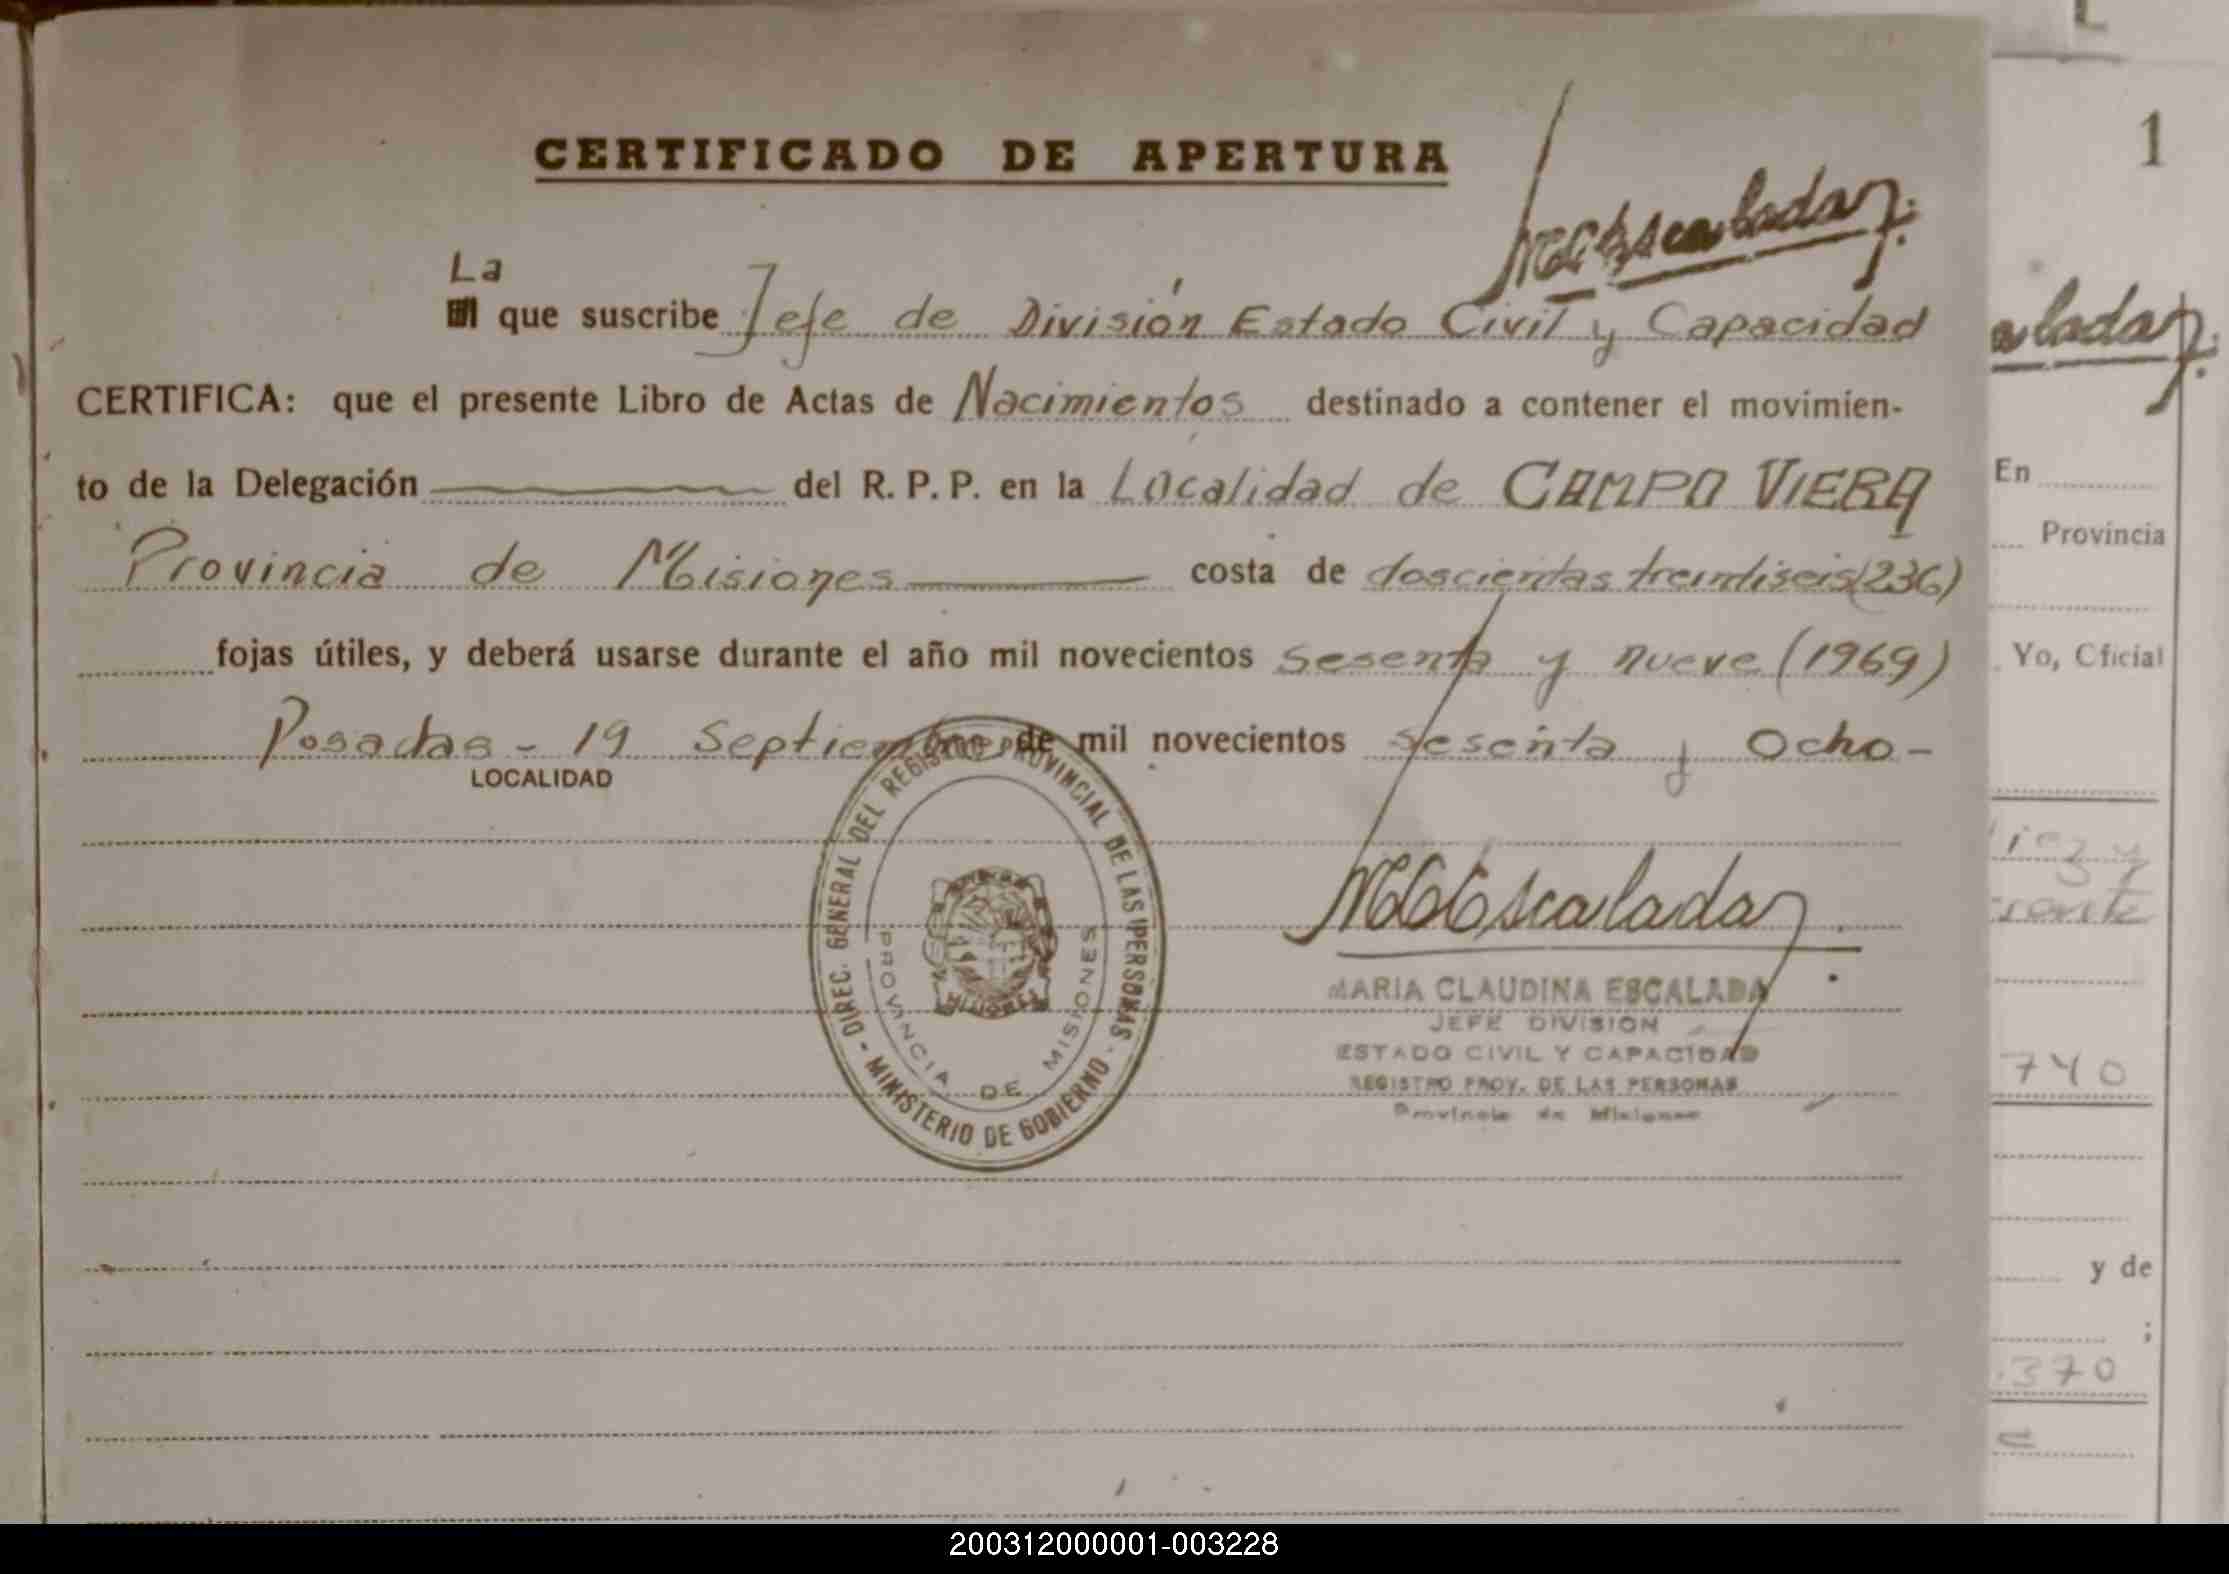 CERTIFICADO DE APERTURA
MCEscalada
La
El que suscribe Jefe de División Estado Civil y Capacidad
CERTIFICA: que el presente Libro de Actas de Nacimientos destinado a contener el movimien-
to de la Delegación del R. P. P. en la Localidad de CAMPO VIERA
Provincia de Misiones costa de doscientas treintiseis (236)
fojas útiles, y deberá usarse durante el año mil novecientos sesenta y nueve (1969)
Posadas - 19 Septiembre de mil novecientos sesenta y Ocho -
LOCALIDAD
DIREC. GENERAL DEL REGISTRO PROVINCIAL DE LAS PERSONAS - MINISTERIO DE GOBIERNO -
PROVINCIA DE MISIONES
MCEscalada
MARIA CLAUDINA ESCALADA
JEFE DIVISION
ESTADO CIVIL Y CAPACIDAD
REGISTRO PROV. DE LAS PERSONAS
Provincia de Misiones
1
alada
En
Provincia
Yo, Oficial
740
y de
;
370
200312000001-003228